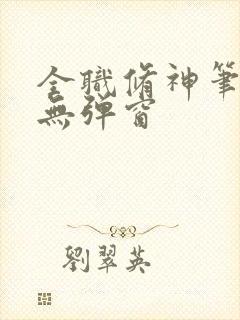 全職脩神筆
無彈窗
劉翠英